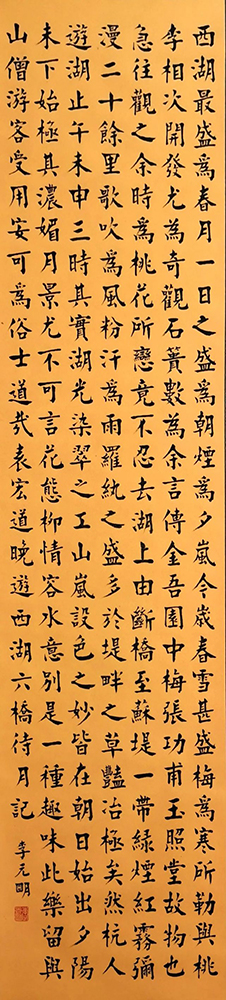 西湖最盛爲春月一日之盛爲朝煙爲夕嵐今歲春雪甚盛梅爲寒所勒與桃
李相次開發尤為奇觀石簣數為余言傅金吾園中梅張功甫玉照堂故物也
急往觀之余時爲桃花所戀竟不忍去湖上由斷橋至蘇堤一帶綠煙紅霧彌
漫二十餘里歌吹爲風粉汗爲雨羅紈之盛多於堤畔之草豔冶極矣然杭人
遊湖止午未申三時其實湖光染翠之工山嵐設色之妙皆在朝日始出夕陽
未下始極其濃媚月景尤不可言花態柳情容水意別是一種趣味此樂留與
山僧游客受用安可爲俗士道哉袁宏道晚遊西湖六橋待月記
李元明